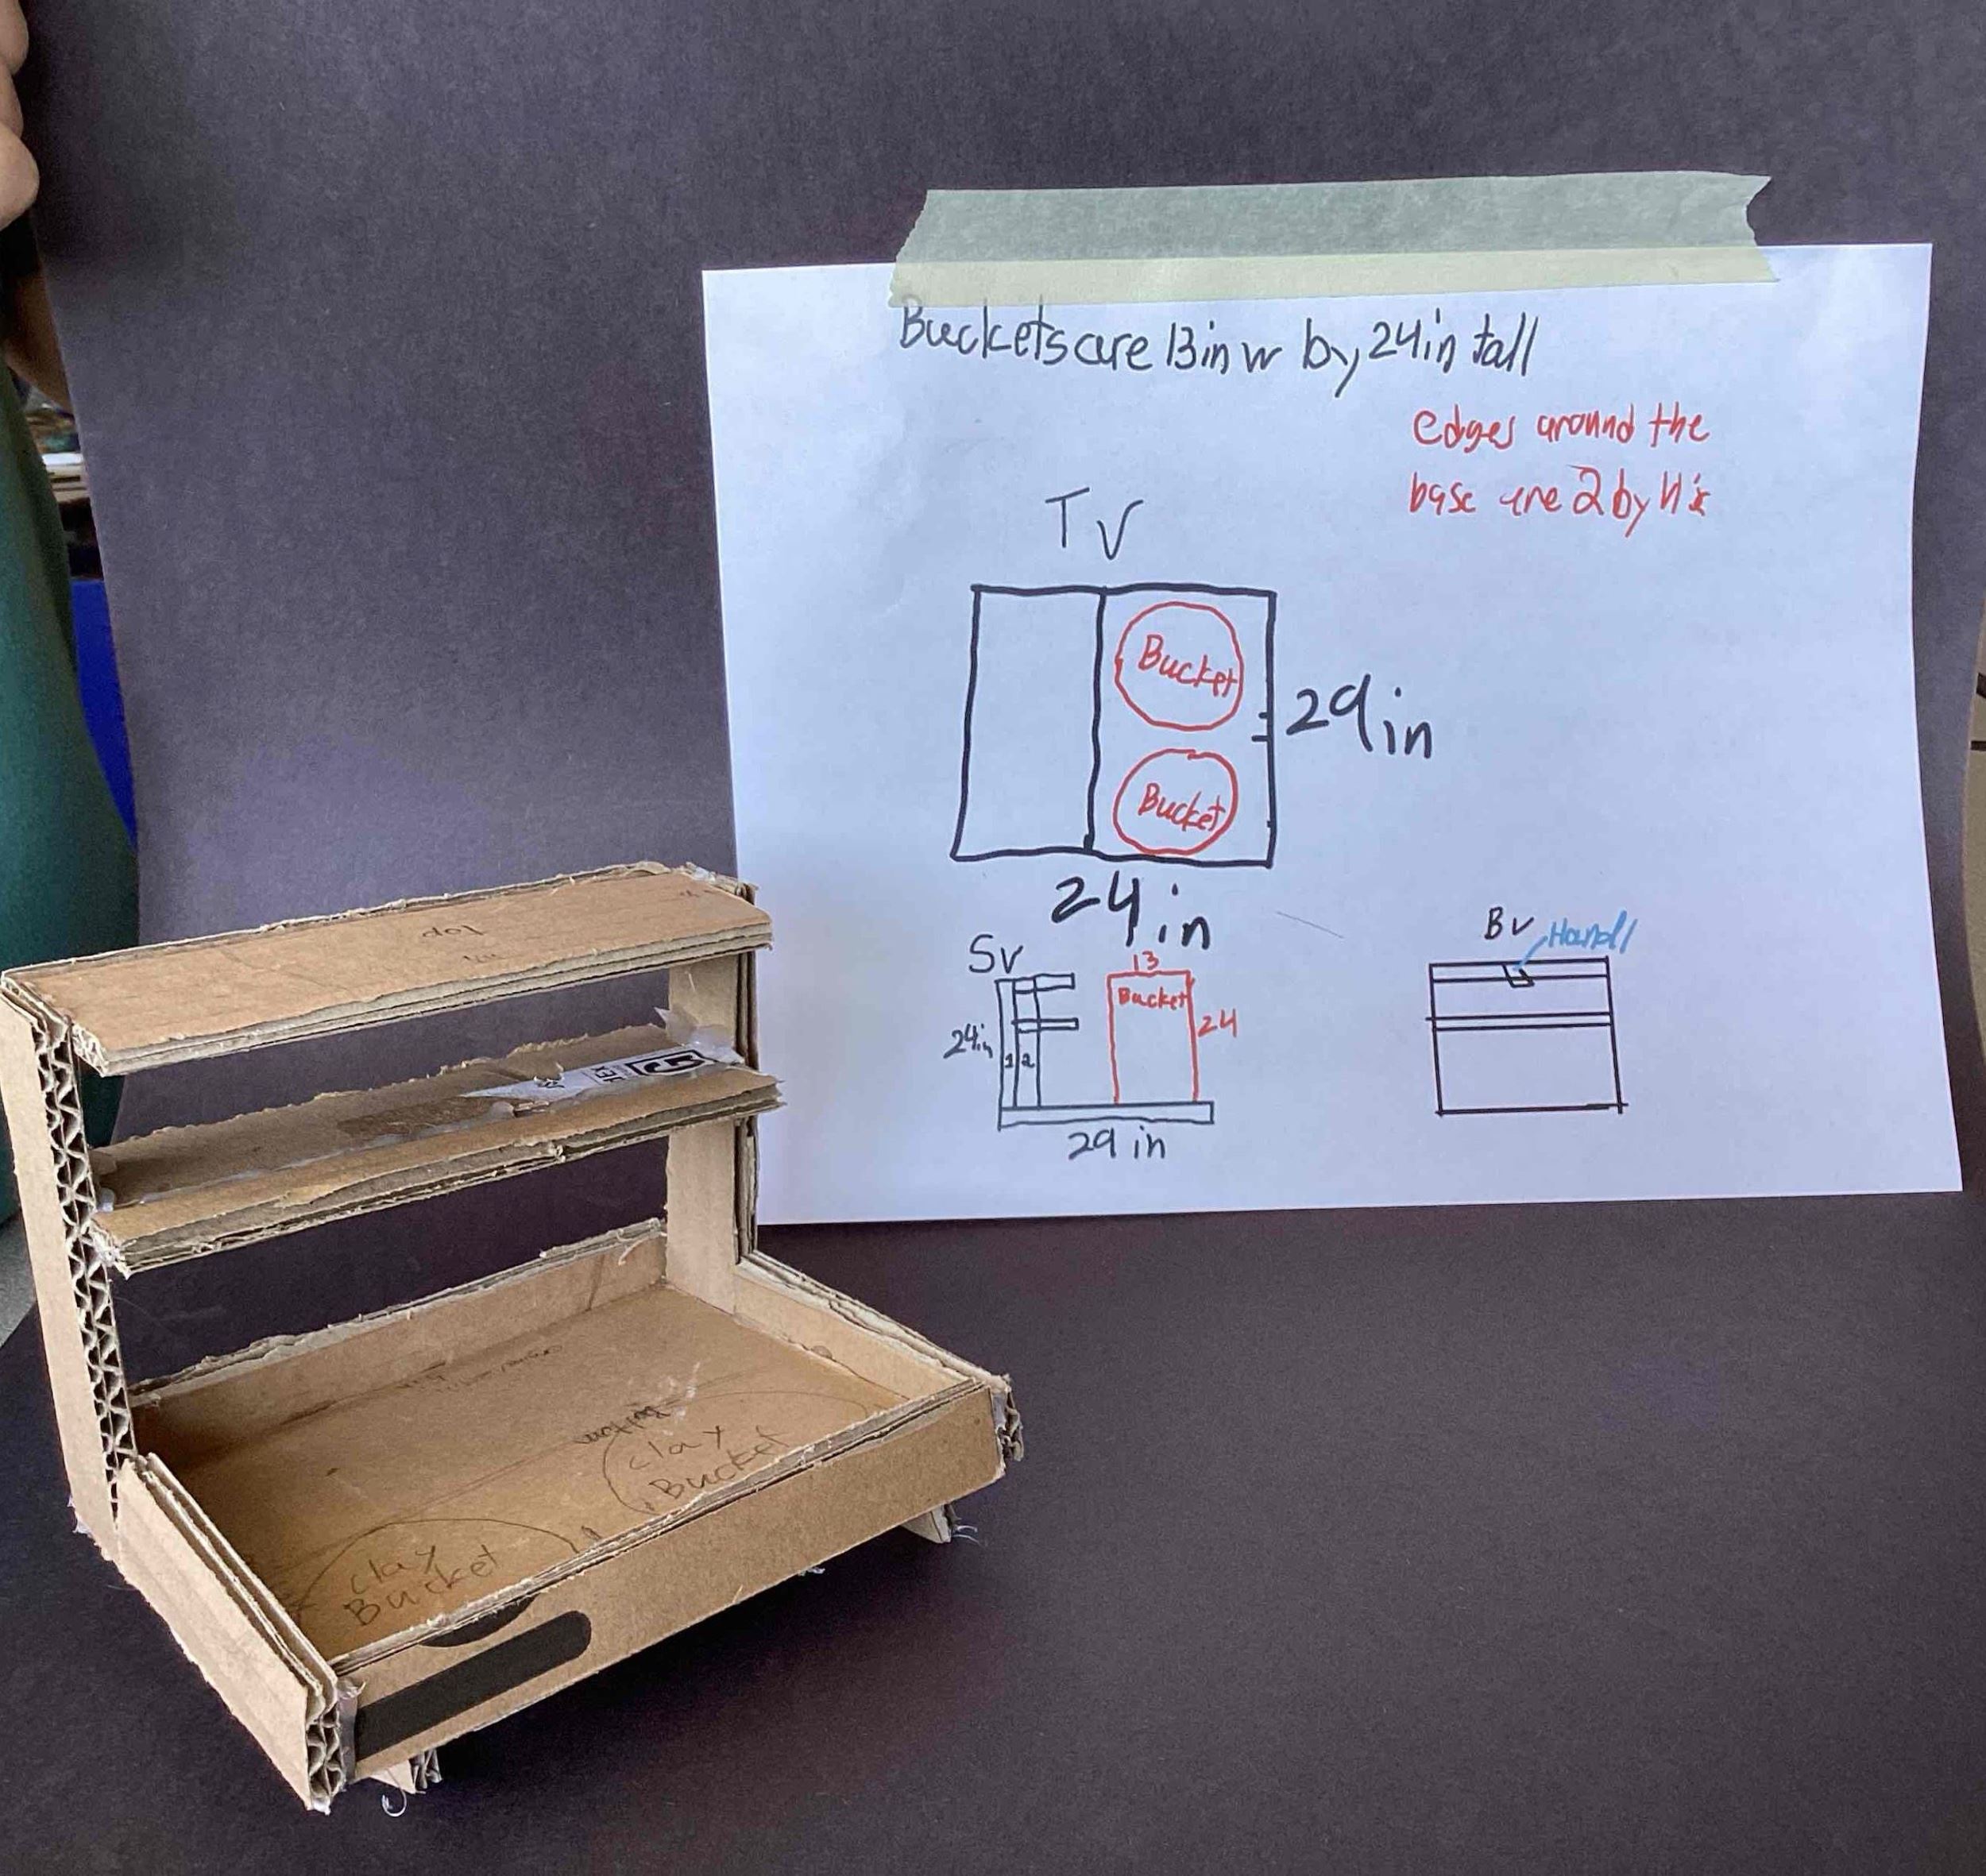 Buckets are 13in w by 24in tall
edges around the
base are 2 by 4's
TV
Bucket
Bucket
29in
24in
SV
13
Bucket
24in
1 2
24
29 in
BV
Handl
Top
clay
Bucket
clay
Bucket